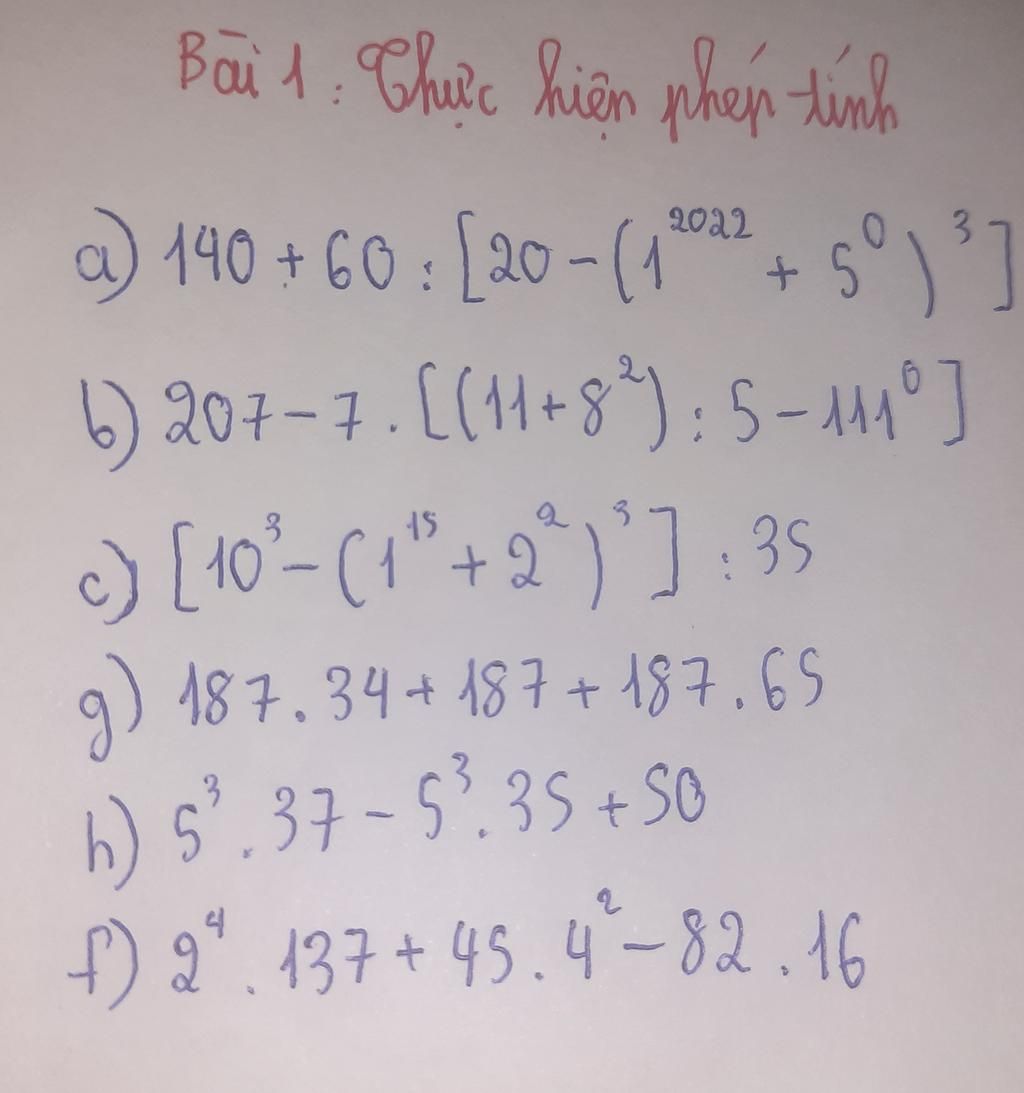 Bài 1: Thực hiện phép tính
a) 140 + 60 : [20 - (1²⁰²² + 5⁰)³]
b) 207 - 7 . [(11 + 8²) : 5 - 111⁰]
c) [10³ - (1¹⁵ + 2²)³] : 35
g) 187 . 34 + 187 + 187 . 65
h) 5³ . 37 - 5³ . 35 + 50
f) 2⁴ . 137 + 45 . 4² - 82 . 16